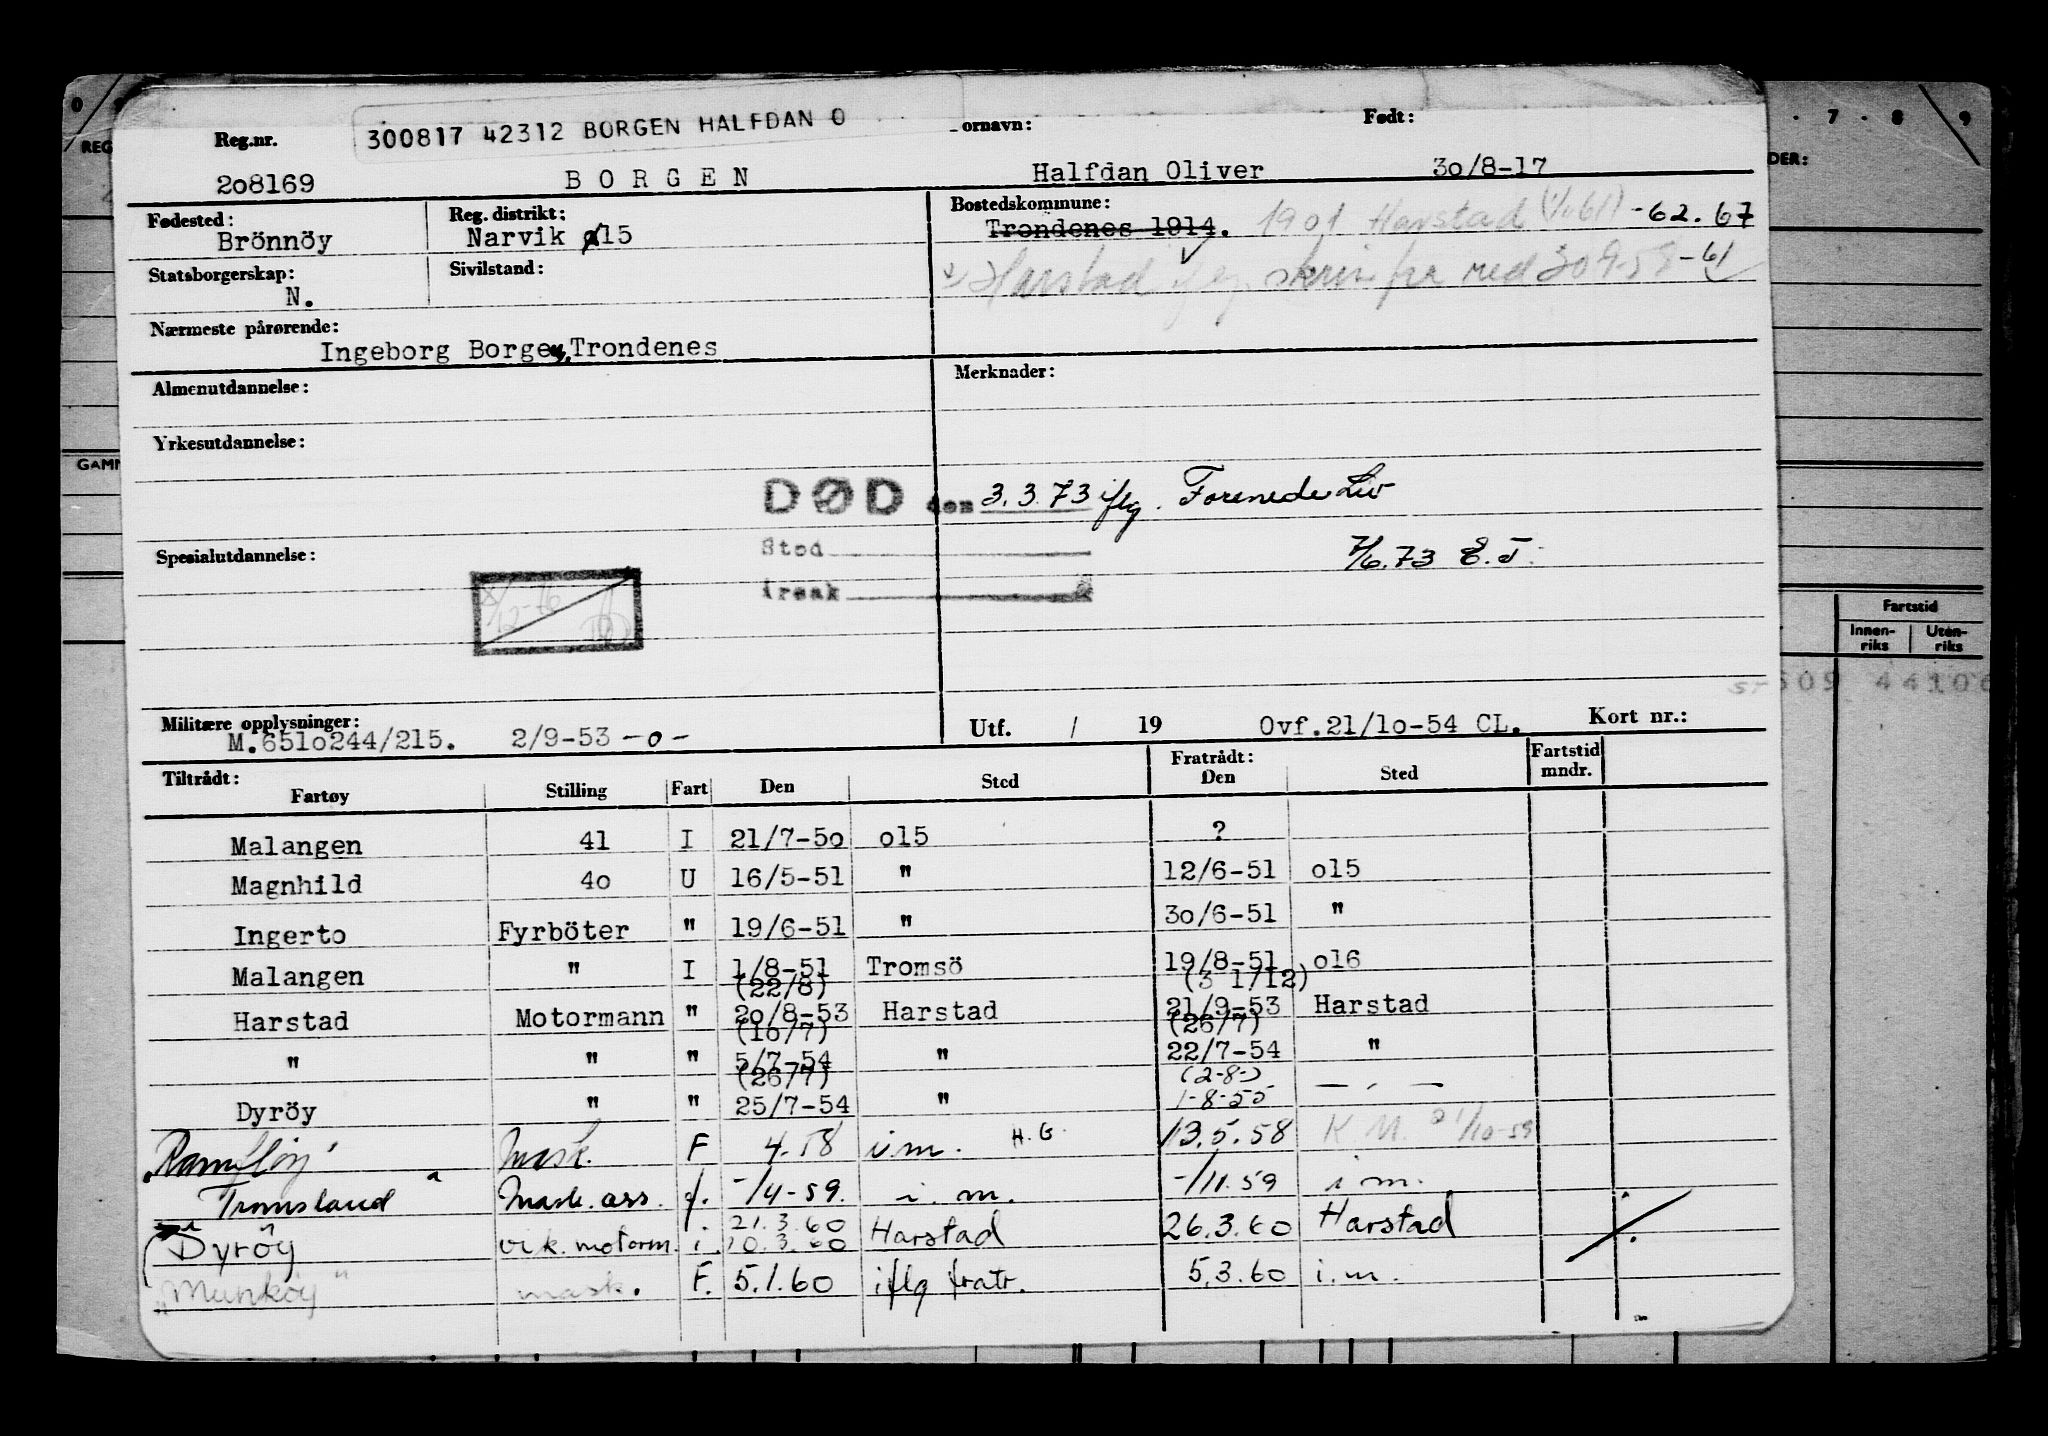 300817 42312 BORGEN HALFDAN O
Reg.nr. ornavn: Født:
208169 BORGEN Halfdan Oliver 30/8-17
Fødested: Reg. distrikt: Bostedskommune:
Brönnöy Narvik 15 Trondenes 1914. 1901 Harstad -62.67
Statsborgerskap: Sivilstand: Harstad iflg. skriv fra red 30.9.58 -61
N.
Nærmeste pårørende:
Ingeborg Borgen, Trondenes
Almenutdannelse: Merknader:
Yrkesutdannelse:
DØD den 3.3.73 iflg. Forenede Liv
Sted
Spesialutdannelse: 7/6.73 E.J.
årsak
Militære opplysninger: Utf. / 19 Ovf.21/10-54 CL. Kort nr.:
M.6510244/215. 2/9-53 -o-
Tiltrådt: Fratrådt: Fartstid
Fartøy Stilling Fart Den Sted Den Sted mndr.
Malangen 41 I 21/7-50 o15 ?
Magnhild 40 U 16/5-51 " 12/6-51 o15
Ingerto Fyrböter " 19/6-51 " 30/6-51 "
Malangen " I 1/8-51 Tromsö 19/8-51 o16
(22/8) (3 1/12)
Harstad Motormann " 20/8-53 Harstad 21/9-53 Harstad
(16/7) (26/7)
" " " 5/7-54 " 22/7-54 "
(26/7) (2-8-)
Dyröy " " 25/7-54 " 1-8-55 — " —
Ramfløy Mask. F 4.58 i.m. H.G. 13.5.58 K.M. 21/10-59
Tromsland Mask. ass. f. -/4-59. i.m. -/11.59 i m.
21.3.60
Dyröy vik. motorm. i. 10.3.60 Harstad 26.3.60 Harstad
"Munköy" mask. F. 5.1.60 iflg fratr. 5.3.60 i.m.
REG
GAMM
7 8 9
DER:
Fartstid
Innen-riks Uten-riks